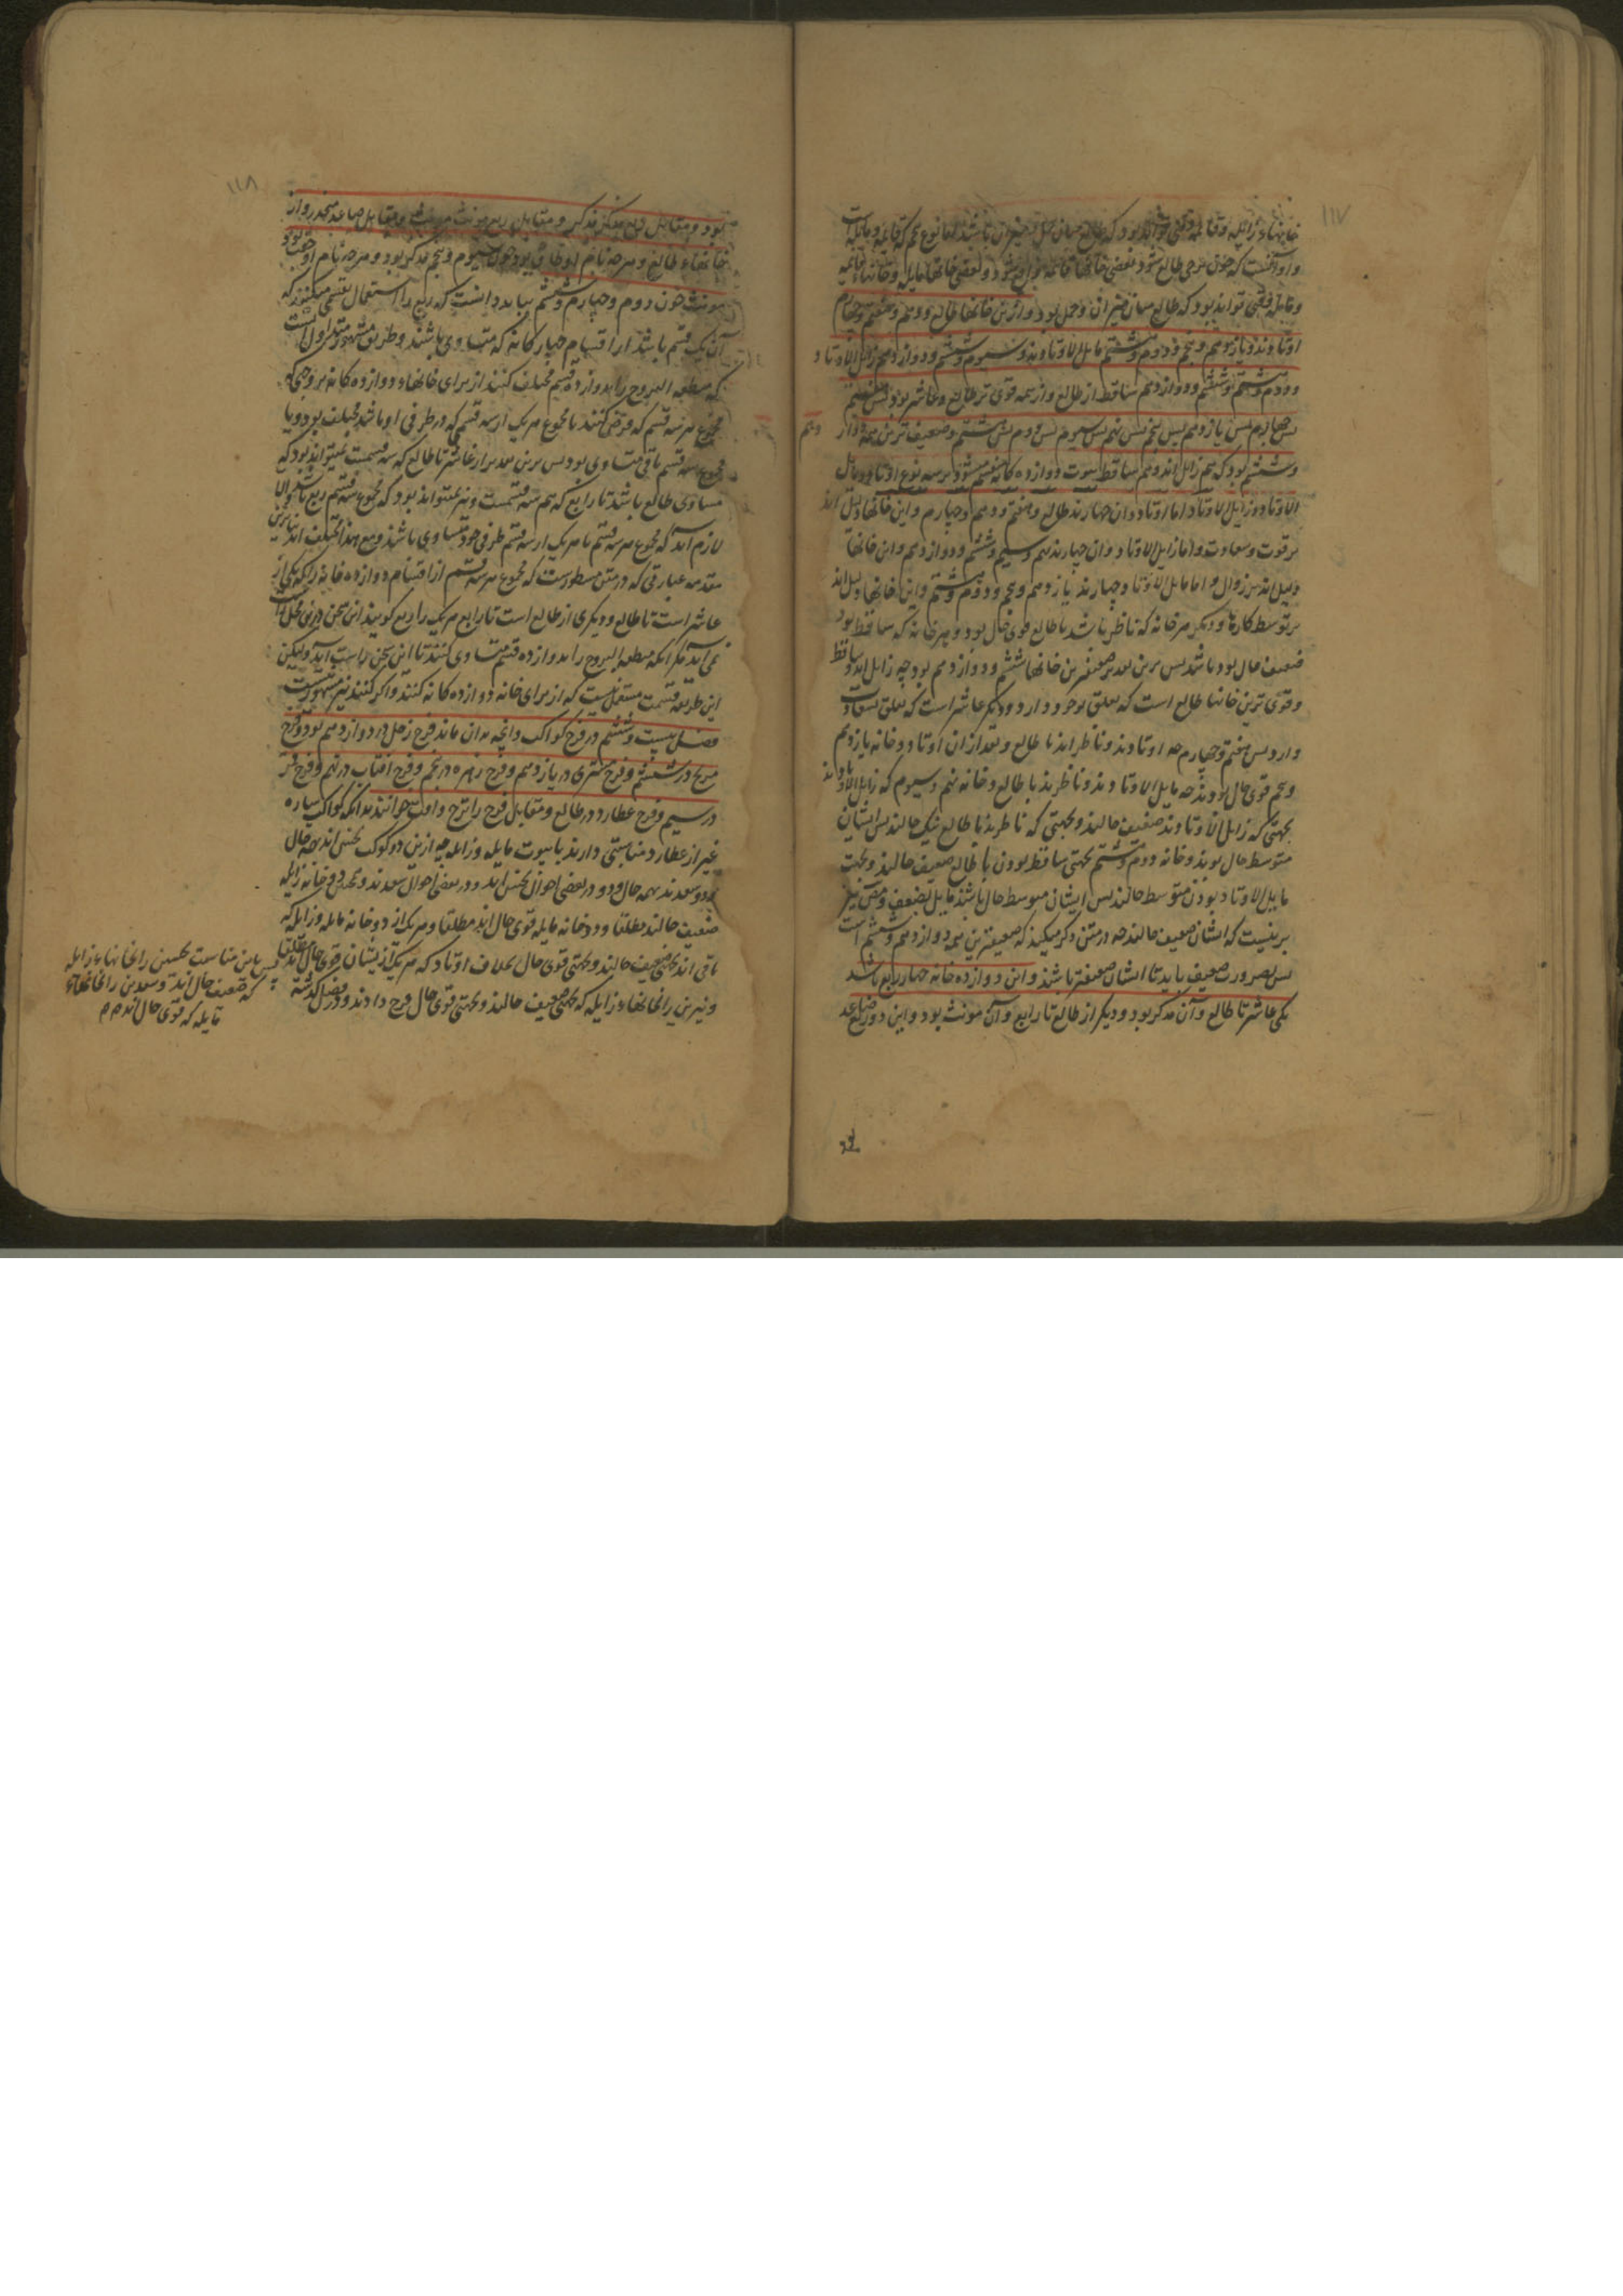 ۱۱۷
اوتادند و یازدهم و پنجم و دوم و هشتم مایل الاوتادند و سیوم و ششم و دوازدهم زایل الاوتاد و
و دوم و هشتم و ششم و دوازدهم ساقط از طالع و از همه قوی تر طالع و عاشر بود پس هفتم
پس چهارم پس یازدهم پس پنجم پس نهم پس سیوم پس دوم پس هشتم و ضعیف ترین همه دوازدهم
و ششم بود که هم زایل اند و هم ساقط بیوت دوازده کانه منقسم میشود بر سه نوع اوتاد و مایل
الاوتاد و زایل الاوتاد اما اوتاد و ان چهارند طالع و هفتم و دهم و چهارم و این خانها دلیل اند
بر قوت و سعادت و اما زایل الاوتاد و ان چهارند نهم و سیم و ششم و دوازدهم و این خانها
دلیل اند بر زوال و اما مایل الاوتاد چهارند یازدهم و پنجم و دوم و هشتم و این خانها دلیل اند
بر توسط کارها و دیکر هر خانه که ناظر باشد با طالع قوی حال بود و هر خانه که ساقط بود
ضعیف حال بود باشد پس برین تقدیر ضعیفترین خانها ششم و دوازدهم بود چه زایل اند و ساقط
و قوی ترین خانها طالع است که تعلق بوجود دارد و دیکر عاشر است که تعلق بسعادت
دارد پس هفتم و چهارم چه اوتادند و ناظر اند با طالع و بعد از ان اوتاد دو خانه یازدهم
و پنجم قوی حال بودند چه مایل الاوتادند و ناظرند با طالع و خانه نهم و سیوم که زایل الاوتادند
بجهتی که زایل الاوتادند ضعیف حالند و بجهتی که ناظرند با طالع نیک حالند پس ایشان
متوسط حال بودند و خانه دوم و هشتم بجهتی ساقط بودن با طالع ضعیف حالند و بجهت
مایل الاوتاد بودن متوسط حالند پس ایشان متوسط حال باشند مایل بضعف و مصنف نیز
برینست که ایشان ضعیف حالند چه در متن ذکر میکند که ضعیفترین همه دوازدهم و ششم است
پس بضرورت ضعیف باید تا ایشان ضعیفتر باشند و این دوازده خانه چهار ربع باشد
یکی عاشر تا طالع و آن مذکر بود و دیکر از طالع تا رابع و آن مونث بود و این دو ربع صاعد
۱۱۸
بود و مقابل ربع مذکر مذکر و مقابل ربع مونث مونث و مقابل صاعد منحدر و از
خانهاء طالع و هرچه نام او طاق بود چون سیوم و پنجم مذکر بود و هرچه نام او جفت بود
مونث چون دوم و چهارم و ششم بباید دانست که ربع را استعمال بقسمی میکنند که
آن یک قسم باشد از اقسام چهارکانه که متساوی باشند و طریق مشهور متداول انست
که منطقه البروج را بدوازده قسم مختلف کنند از برای خانهاء دوازده کانه بر وجهی که
مجموع هر سه قسم که فرض کنند با مجموع هر یک از سه قسمی که در طرفی او باشد مختلف بود و با
مجموع سه قسم باقی متساوی بود پس برین تقدیر از عاشر تا طالع که سه قسمست نمیتواند بود که
مساوی طالع باشد تا رابع که هم سه قسمست و نه نمیتواند بود که مجموع سه قسم ربع باشد و الا
لازم آید که مجموع هر سه قسم با هر یک از سه قسم طرفی خود متساوی باشند و مع هذا مختلف اند بنابرین
مقدمه عبارتی که در متن مسطورست که مجموع هر سه قسم از اقسام دوازده خانه را که یکی از
عاشر است تا طالع و دیکری از طالع است تا رابع هر یک را ربع کویند این سخن درین محل راست
نمی آید مکر آنکه منطقه البروج را بدوازده قسم متساوی کنند تا این سخن راست آید و لیکن
این طریقه قسمت مستعمل نیست که از برای خانه دوازده کانه کنند و اکر کنند نیز مشهور نیست
فصل بیست و ششم در فرح کواکب و آنچه بدان ماند فرح زحل در دوازدهم بود و فرح
مریخ در ششم و فرح مشتری در یازدهم و فرح زهره در پنجم و فرح افتاب در نهم و فرح قمر
در سیم و فرح عطارد در طالع و مقابل فرح را ترح و آفت خوانند بدانکه کواکب سیاره
غیر از عطارد مناسبتی دارند با بیوت مایله و زایله چه ازین دو کوکب نحس اند بهمه حال
و دو سعدند بهمه حال و دو در بعضی احوال نحس اند و در بعضی احوال سعدند و همچنین دو خانه زایله
ضعیف حالند مطلقا و دو خانه مایله قوی حال اند مطلقا و هر یک از دو خانه مایله و زایله که
باقی اند بجهتی ضعیف حالند و بجهتی قوی حال بخلاف اوتاد که هر یک از یشان قوی حال اند مطلقا
و نیرین را خانهاء زایله که بجهتی ضعیف حالند و بجهتی قوی حال فرح دادند و در فصل کذشته
پس باین مناسبت نحسین را خانهاء زایله
که ضعیف حال اند و سعدین را خانهاء
مایله که قوی حال اند م م